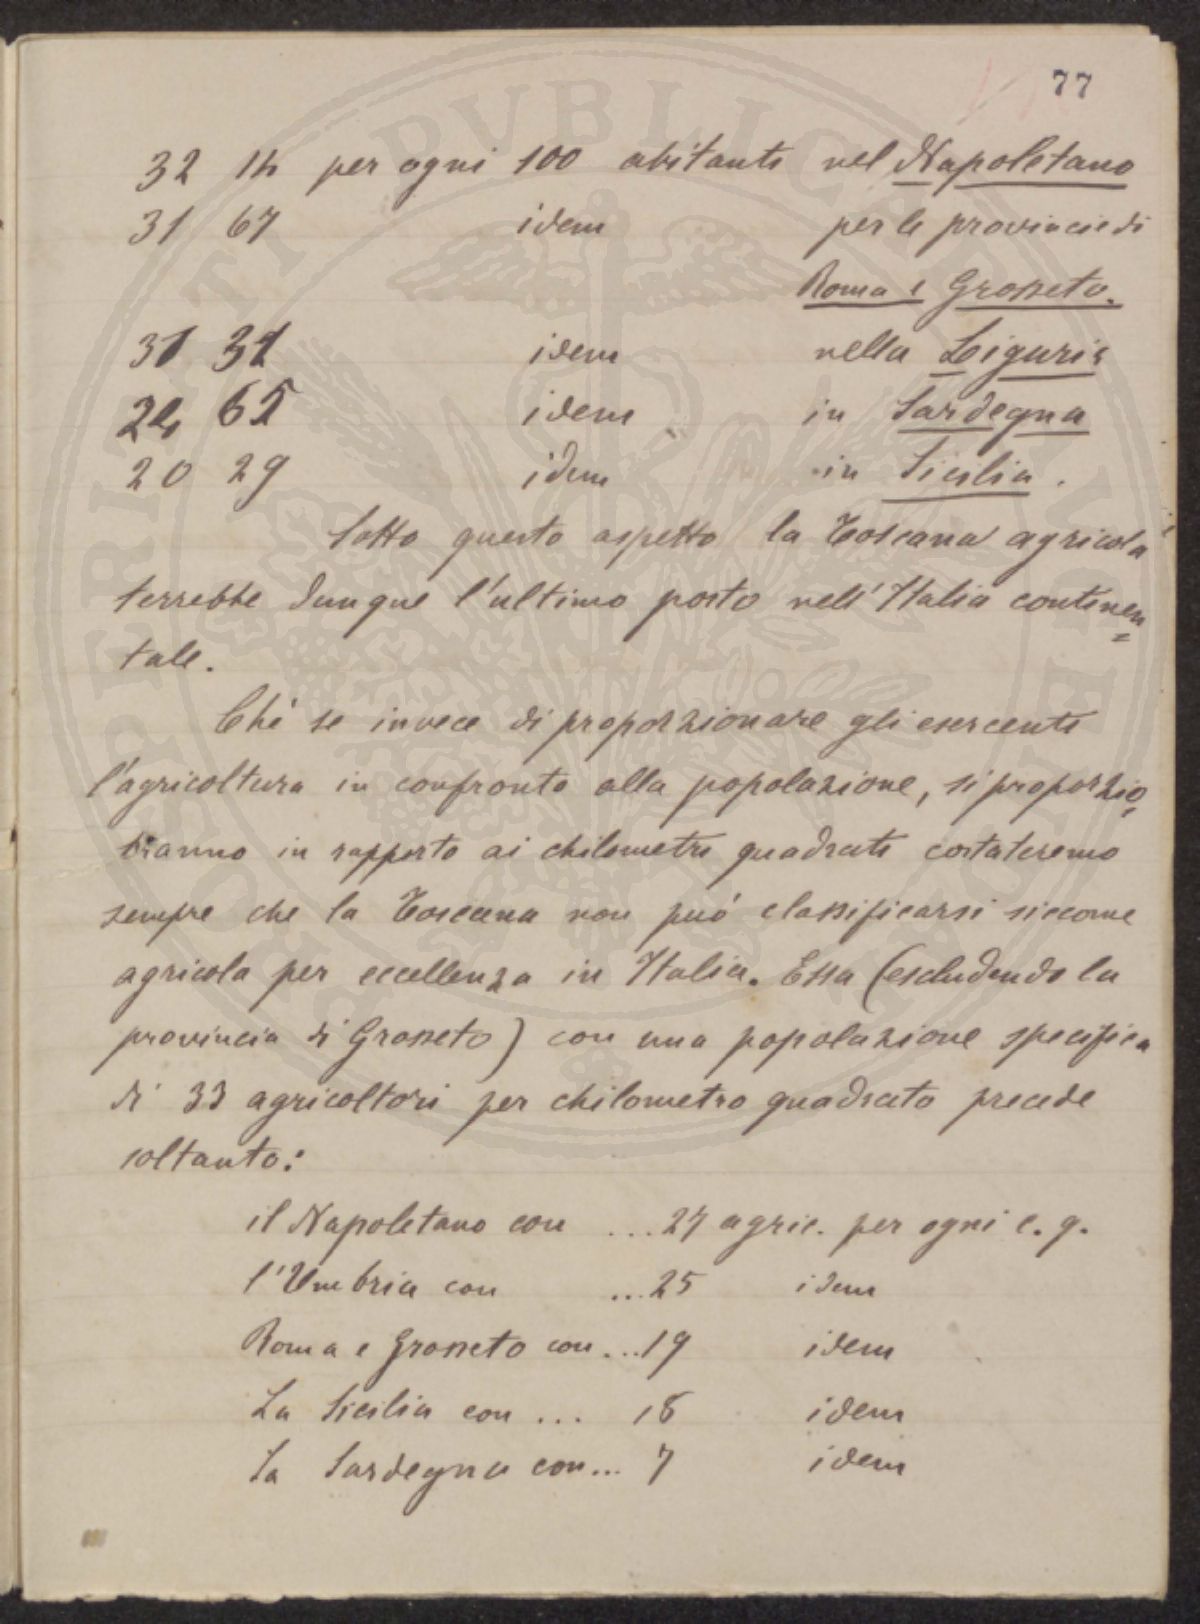 77
32 14 per ogni 100 abitanti nel Napoletano
31 67 idem per le provincie di
Roma e Grosseto.
31 31 idem nella Liguria
24 65 idem in Sardegna
20 29 idem in Sicilia.
Sotto questo aspetto la Toscana agricola
terrebbe dunque l'ultimo posto nell'Italia continen=
tale.
Chè se invece di proporzionare gli esercenti
l'agricoltura in confronto alla popolazione, si proporzio=
ranno in rapporto ai chilometri quadrati costateremo
sempre che la Toscana non può classificarsi siccome
agricola per eccellenza in Italia. Essa (escludendo la
provincia di Grosseto) con una popolazione specifica
di 33 agricoltori per chilometro quadrato precede
soltanto:
il Napoletano con ... 27 agric. per ogni c. q.
l'Umbria con ... 25 idem
Roma e Grosseto con ... 19 idem
La Sicilia con ... 18 idem
La Sardegna con ... 7 idem